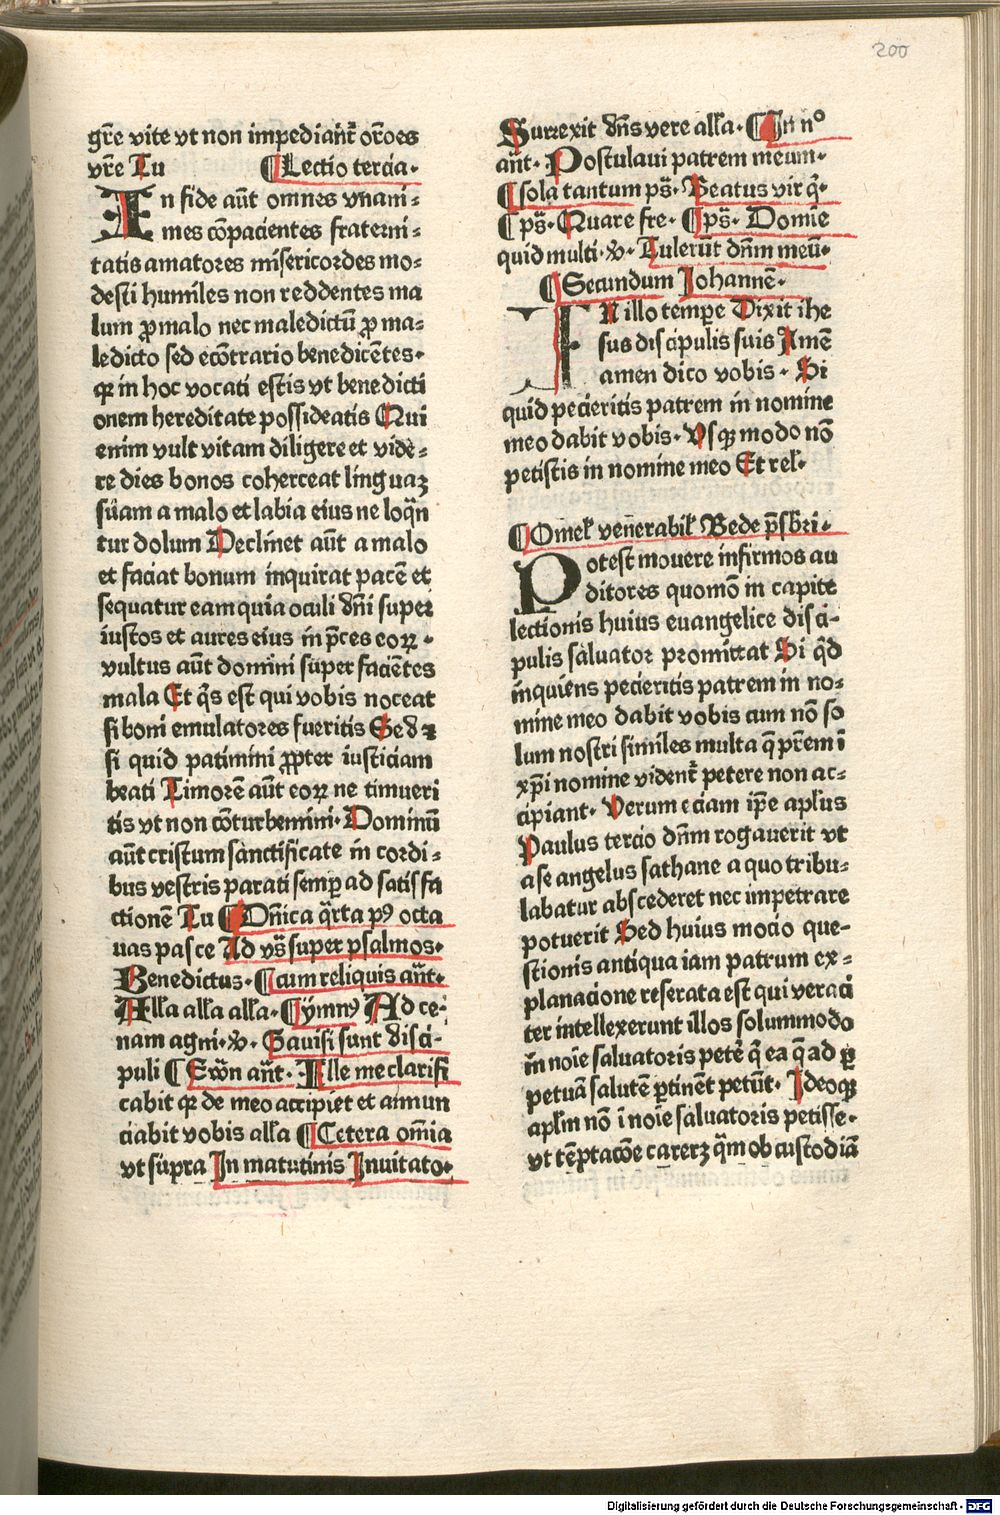 200
gr̄e vite vt non impediant᷑ or̄oes
vr̄e Tu ¶ Lectio tercia.
In fide aūt omnes vnani⸗
mes cōpacientes fraterni⸗
tatis amatores misericordes mo⸗
desti humiles non reddentes ma
lum ꝓ malo nec maledictū ꝓ ma⸗
ledicto sed econ̄trario benedicētes.
qꝛ in hoc vocati estis vt benedicti
onem hereditate possideatis Qui
enim vult vitam diligere et vide⸗
re dies bonos coherceat linguaꝫ
suam a malo et labia eius ne loqn̄
tur dolum Declinet aūt a malo
et faciat bonum inquirat pacē et
sequatur eam quia oculi dn̄i super
iustos et aures eius in p̄ces eoꝝ.
vultus aūt domini super faciētes
mala Et q̄s est qui vobis noceat
si boni emulatores fueritis Sed ⁊
si quid patimini ꝓpter iusticiam
beati Timorē aūt eoꝝ ne timueri
tis vt non cōturbemini. Dominū
aūt cristum sanctificate in cordi⸗
bus vestris parati semꝑ ad satisfa
ctionē Tu ¶ Dn̄ica q̄rta pꝰ octa
uas pasce Ad vs̄ super psalmos.
Benedictus. ¶ cum reliquis ān̄t.
Alla alla alla. ¶ ymnꝰ Ad ce⸗
nam agni. ℣. Gauisi sunt disci⸗
puli ¶ Ewn̄ an̄t. Ille me clarifi
cabit qꝛ de meo accipiet et annun
ciabit vobis alla ¶ Cetera om̄ia
vt supra In matutinis Inuitato.
Surrexit dn̄s vere alla. ¶ In n°
an̄t. Postulaui patrem meum.
¶ sola tantum ps̄. Beatus vir q̄.
¶ ps̄. Quare fre. ¶ ps̄. Domīe
quid multi. ℣. Tulerūt dn̄m meū.
¶ Secundum Johannē.
In illo tempe Dixit ihe
sus discipulis suis Amē
amen dico vobis. Si
quid pecieritis patrem in nomine
meo dabit vobis. Vsqꝫ modo nō
petistis in nomine meo Et rel.
¶ Omel̄ venerabil̄ Bede p̄sbri.
Potest mouere infirmos au
ditores quomō in capite
lectionis huius euangelice disci⸗
pulis saluator promittat Si qd̄
inquiens pecieritis patrem in no⸗
mine meo dabit vobis cum nō so
lum nostri similes multa q̄ pr̄em ī
xp̄i nomine vident᷑ petere non ac⸗
cipiant. Verum eciam ip̄e apl̄us
Paulus tercio dn̄m rogauerit vt
a se angelus sathane a quo tribu⸗
labatur abscederet nec impetrare
potuerit Sed huius mocio que⸗
stionis antiqua iam patrum ex⸗
planacione reserata est qui veraci
ter intellexerunt illos solummodo
in noīe saluatoris petē q̄ ea q̄ ad ꝑ
petuā salutē ꝑtinēt petūt. Ideoqꝫ
apl̄m nō ī noīe saluatoris petisse.
vt tēptacōe carerꝫ qm̄ ob custodiā
Digitalisierung gefördert durch die Deutsche Forschungsgemeinschaft - DFG